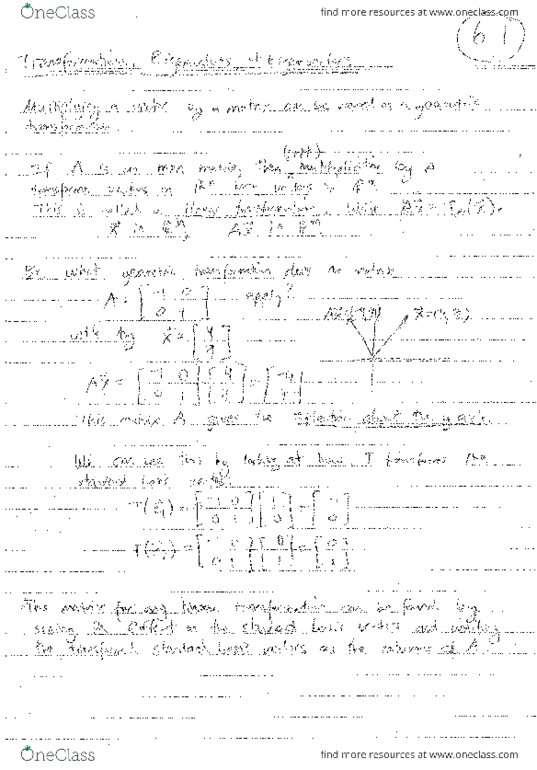 OneClass find more resources at www.oneclass.com
6.1
Transformations, Eigenvalues
Multiplying a vector by a matrix can be viewed as a geometric
transformation
If A is an mxn matrix, then multiplication by A
transforms vectors in Rⁿ into vectors in Rᵐ
This is called a linear transformation. Write Ax⃗ = T_A(x⃗).
x⃗ in Rⁿ, Ax⃗ in Rᵐ
Ex what geometric transformation does the matrix
A = [-1 0; 0 1] apply?
x⃗ =
Ax⃗ = [-1 0; 0 1]
This matrix A gives the reflection about the y axis.
We can see this by looking at how T transforms the
standard basis vectors
T(e⃗₁) = [-1 0; 0 1] [1; 0] = [-1; 0]
= [0; 1]
The matrix for any linear transformation can be found by
seeing its effect on the standard basis vectors and writing
the standard basis vectors as the columns of A.
OneClass find more resources at www.oneclass.com